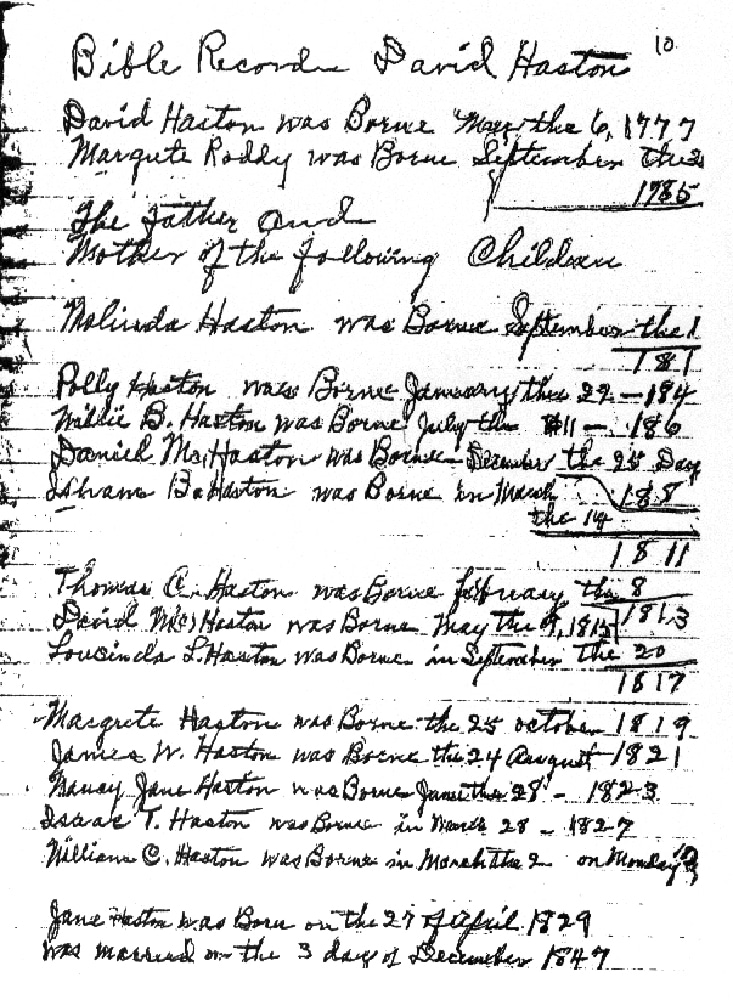 10
Bible Record David Haston
David Haston was Borne May the 6, 1777
Margrete Roddy was Borne September the
1785
The Father and
Mother of the following Children
Malinda Haston was Borne September the 1
181
Polly Haston was Borne January the 29 — 184
Willie B. Haston was Borne July the 11 — 186
Daniel Mc. Haston was Borne December the 25 Day
Isham B Haston was Borne in March 188
the 14
1811
Thomas C. Haston was Borne february the 8
David Mc Haston was Borne May the 9, 1815 1813
Loucinda L. Haston was Borne in September the 20
1817
Margrete Haston was Borne the 25 october 1819
James W. Haston was Borne the 24 August 1821
Nancy Jane Haston was Borne June the 28 - 1823
Isaac T. Haston was Borne in March 28 - 1827
William C. Haston was Borne in March the 2 on Monday
Jane Haston was Born on the 27 of April 1829
was married on the 3 day of December 1847